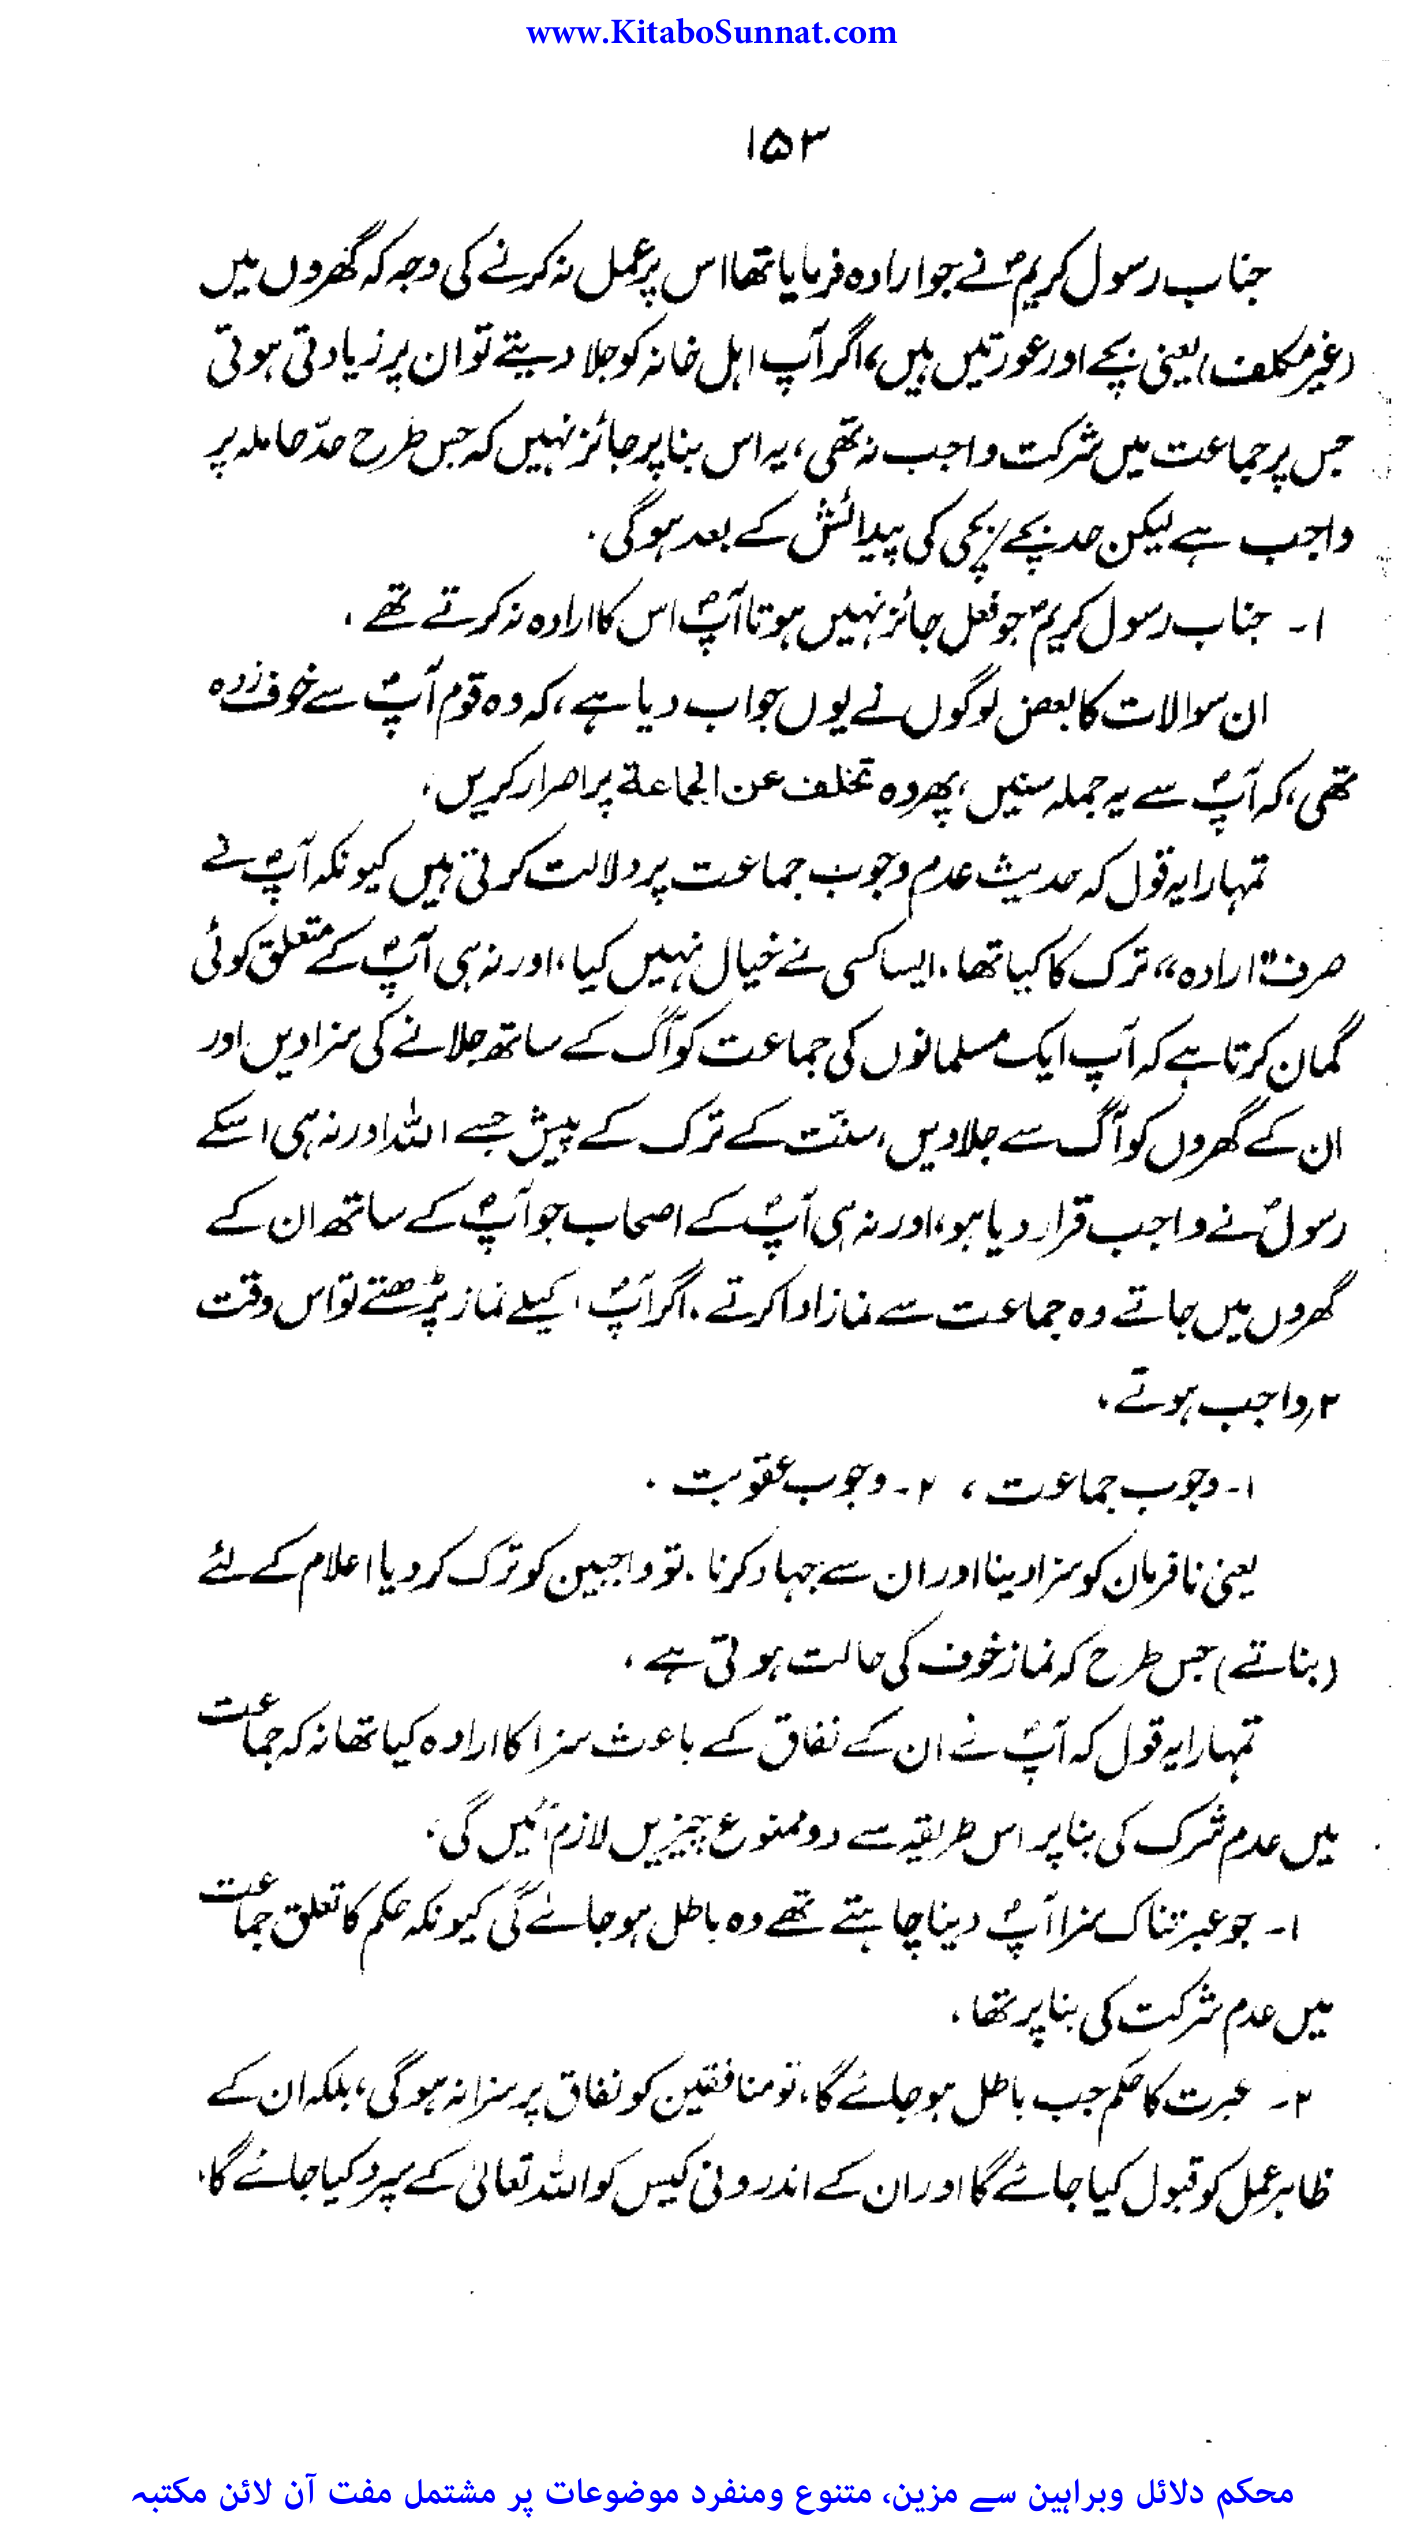 www.KitaboSunnat.com
۱۵۳
جناب رسول کریمؐ نے جو ارادہ فرمایا تھا اس پر عمل نہ کرنے کی وجہ کہ گھروں میں
(غیر مکلف) یعنی بچے اور عورتیں ہیں، اگر آپ اہل خانہ کو جلا دیتے تو ان پر زیادتی ہوتی
جس پر جماعت میں شرکت واجب نہ تھی، یہ اس بنا پر جائز نہیں کہ جس طرح حدّ حاملہ پر
واجب ہے لیکن حد بچے/بچی کی پیدائش کے بعد ہوگی.
۱۔ جناب رسول کریمؐ جو فعل جائز نہیں ہوتا آپؐ اس کا ارادہ نہ کرتے تھے.
ان سوالات کا بعض لوگوں نے یوں جواب دیا ہے، کہ وہ قوم آپؐ سے خوف زدہ
تھی، کہ آپؐ سے یہ جملہ سنیں، پھر وہ تخلف عن الجماعة پر اصرار کریں.
تمہارا یہ قول کہ حدیث عدم وجوب جماعت پر دلالت کرتی ہیں کیونکہ آپؐ نے
صرف "ارادہ" ترک کا کیا تھا. ایسا کسی نے خیال نہیں کیا، اور نہ ہی آپؐ کے متعلق کوئی
گمان کرتا ہے کہ آپ ایک مسلمانوں کی جماعت کو آگ کے ساتھ جلانے کی سزا دیں اور
ان کے گھروں کو آگ سے جلا دیں، سنّت کے ترک کے پیش جسے اللہ اور نہ ہی اسکے
رسولؐ نے واجب قرار دیا ہو، اور نہ ہی آپؐ کے اصحاب جو آپؐ کے ساتھ ان کے
گھروں میں جاتے وہ جماعت سے نماز ادا کرتے. اگر آپؐ اکیلے نماز پڑھتے تو اس وقت
۲ر واجب ہوتے.
۱۔ وجوب جماعت، ۲۔ وجوب عقوبت.
یعنی نافرمان کو سزا دینا اور ان سے جہاد کرنا. تو واجبین کو ترک کر دیا اعلام کے لئے
(بناتے) جس طرح کہ نماز خوف کی حالت ہوتی ہے.
تمہارا یہ قول کہ آپؐ نے ان کے نفاق کے باعث سزا کا ارادہ کیا تھا نہ کہ جماعت
میں عدم شرک کی بنا پر اس طریقہ سے دو ممنوع چیزیں لازم آئیں گی.
۱۔ جو عبرتناک سزا آپؐ دینا چاہتے تھے وہ باطل ہو جائے گی کیونکہ حکم کا تعلق جماعت
میں عدم شرکت کی بنا پر تھا.
۲۔ عبرت کا حکم جب باطل ہو جائے گا، تو منافقین کو نفاق پر سزا نہ ہوگی، بلکہ ان کے
ظاہر عمل کو قبول کیا جائے گا اور ان کے اندرونی کیس کو اللہ تعالیٰ کے سپرد کیا جائے گا.
محکم دلائل وبراہین سے مزین، متنوع ومنفرد موضوعات پر مشتمل مفت آن لائن مکتبہ